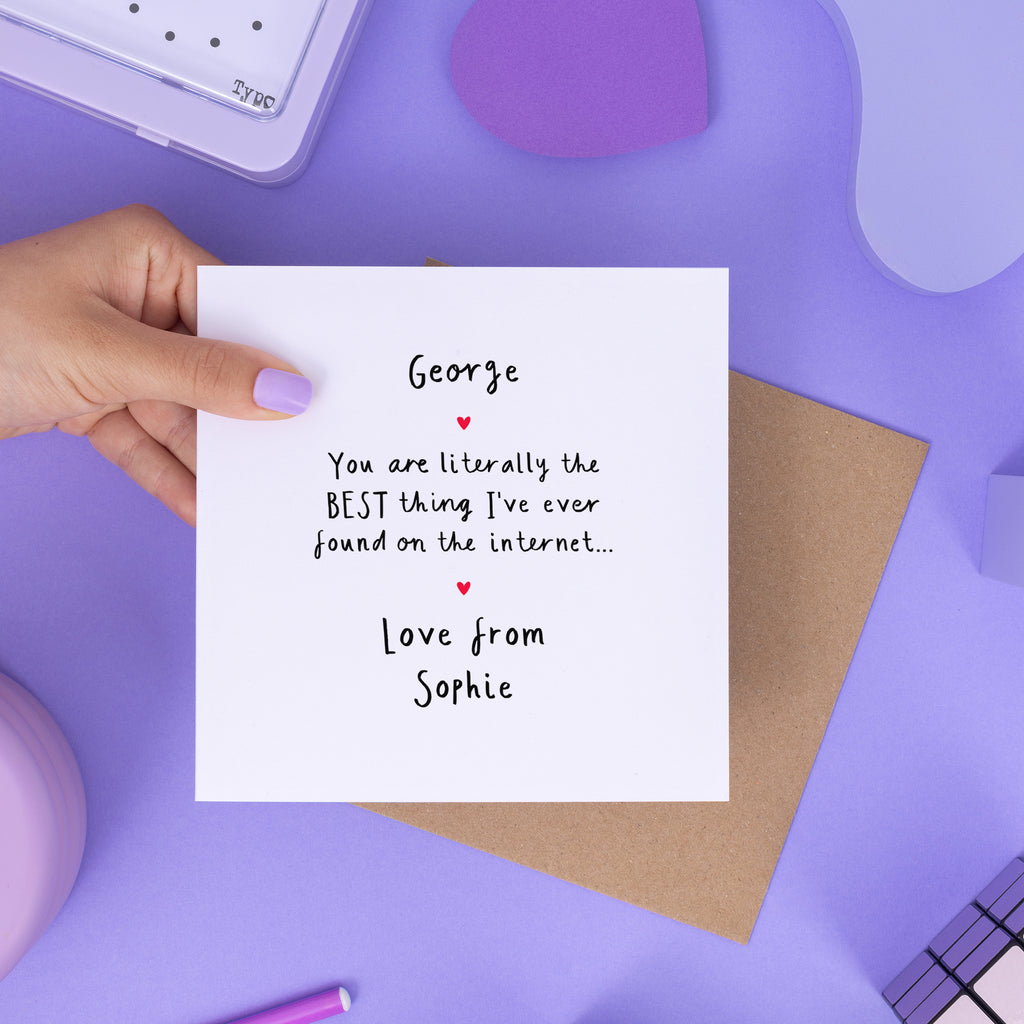 Typo
George
You are literally the
BEST thing I've ever
found on the internet...
Love from
Sophie